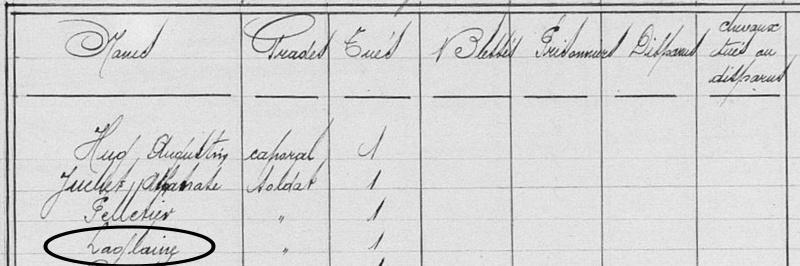 Noms Grades Tués Blessés Prisonniers Disparus chevaux tués ou disparus
Hug Augustin caporal 1
Juillet Athanase soldat 1
Pelletier " 1
Laglaine " 1